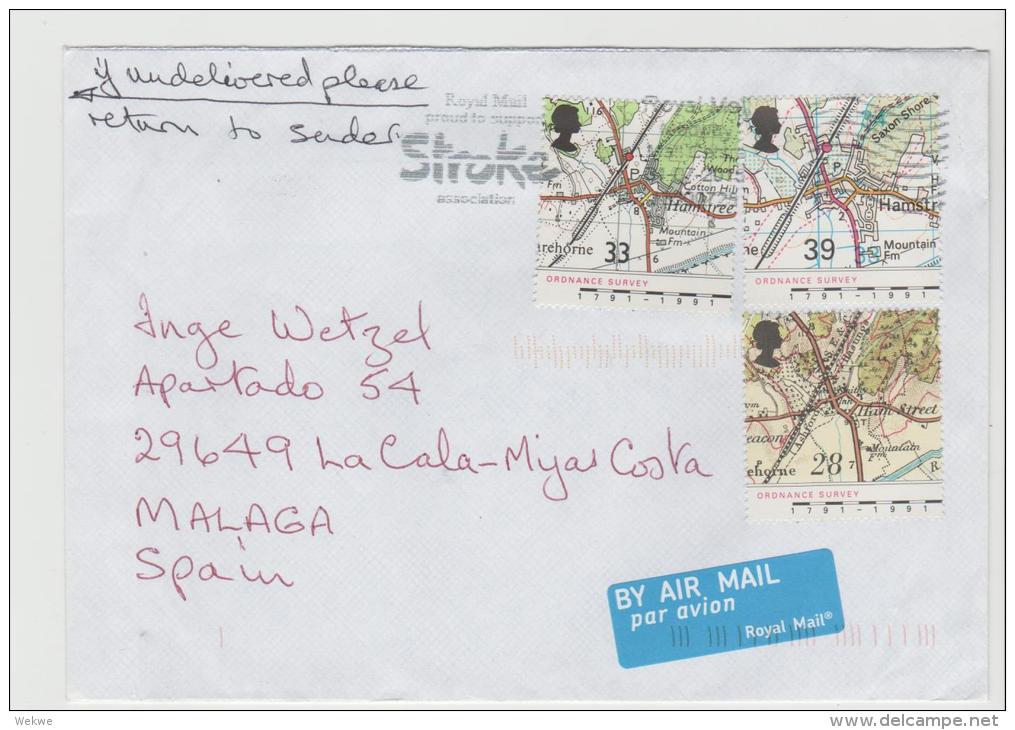 if undelivered please
return to sender
Royal Mail
proud to support
Stroke
association
116
P
Fm
Cotton Hill
Hamstree
8
Mountain
Fm
arehorne
33
6
ORDNANCE SURVEY
1791-1991
Saxon Shore
P
Hamstr
39
Mountain
Fm
ORDNANCE SURVEY
1791-1991
Ham Street
eacon
Ashford
T
Mountain
Fm
ehorne
28
7
R
ORDNANCE SURVEY
1791-1991
Inge Wetzel
Apartado 54
29649 La Cala-Mijas Costa
MALAGA
Spain
BY AIR MAIL
par avion
Royal Mail®
Wekwe
www.delcampe.net